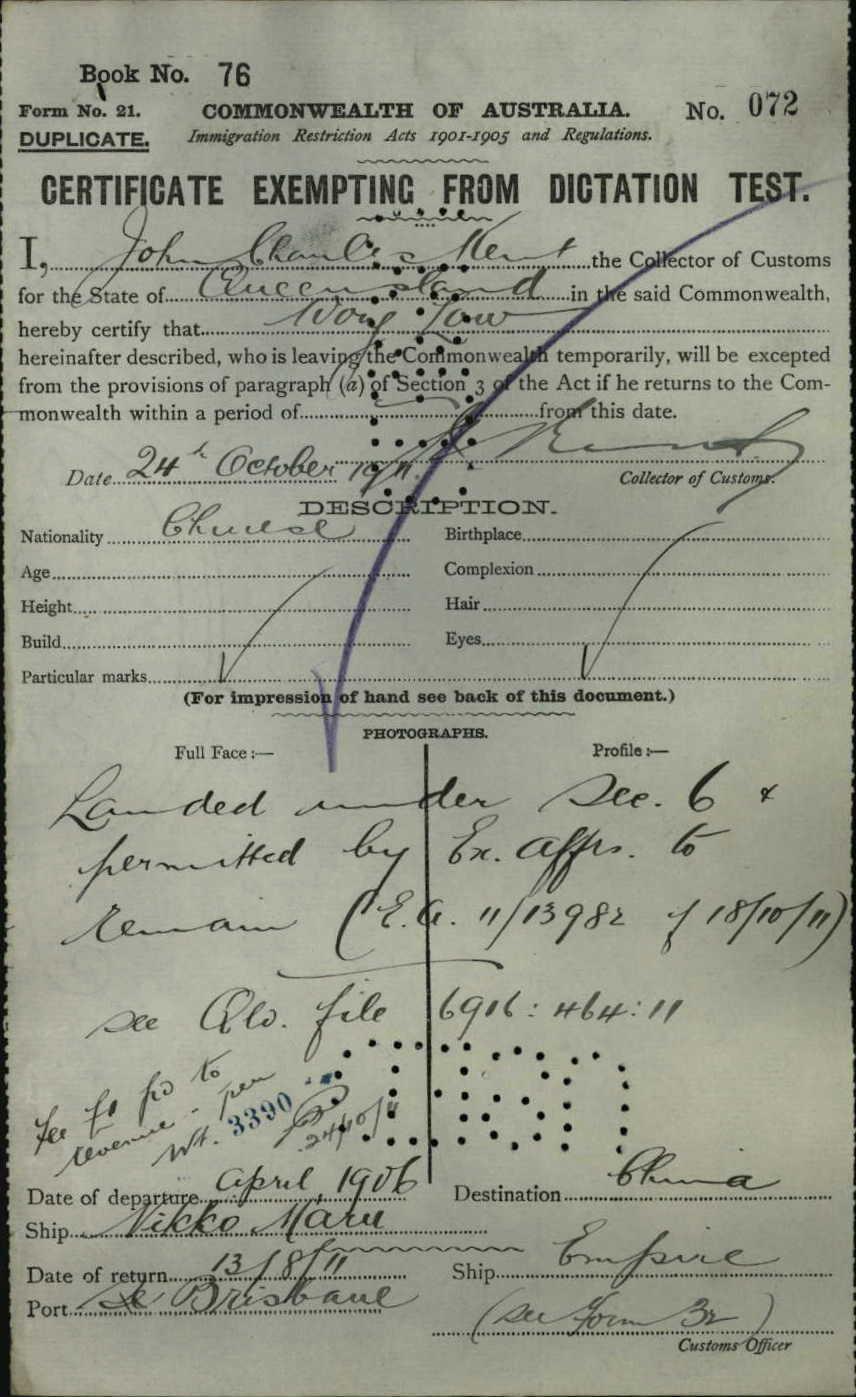 Book No. 76
Form No. 21. COMMONWEALTH OF AUSTRALIA. No. 072
DUPLICATE. Immigration Restriction Acts 1901-1905 and Regulations.
CERTIFICATE EXEMPTING FROM DICTATION TEST.
I, John Charles Kent the Collector of Customs
for the State of Queensland in the said Commonwealth,
hereby certify that Wong Low
hereinafter described, who is leaving the Commonwealth temporarily, will be excepted
from the provisions of paragraph (a) of Section 3 of the Act if he returns to the Com-
monwealth within a period of from this date.
Date 24th October 1911.
Collector of Customs.
DESCRIPTION.
Nationality Chinese Birthplace
Age Complexion
Height Hair
Build Eyes
Particular marks
(For impression of hand see back of this document.)
PHOTOGRAPHS.
Full Face :— Profile :—
Landed under Sec. 6 &
permitted by Ex. Affrs. to
remain (E.A. 11/13982 of 18/10/11)
see Qld. file 6916 : 464 : 11
Fee £1 pd to
revenue per
3390
24/10/11
Date of departure April 1906 Destination China
Ship Nikko Maru
Date of return 13/8/11 Ship Empire
Port Brisbane
(see Form 32)
Customs Officer